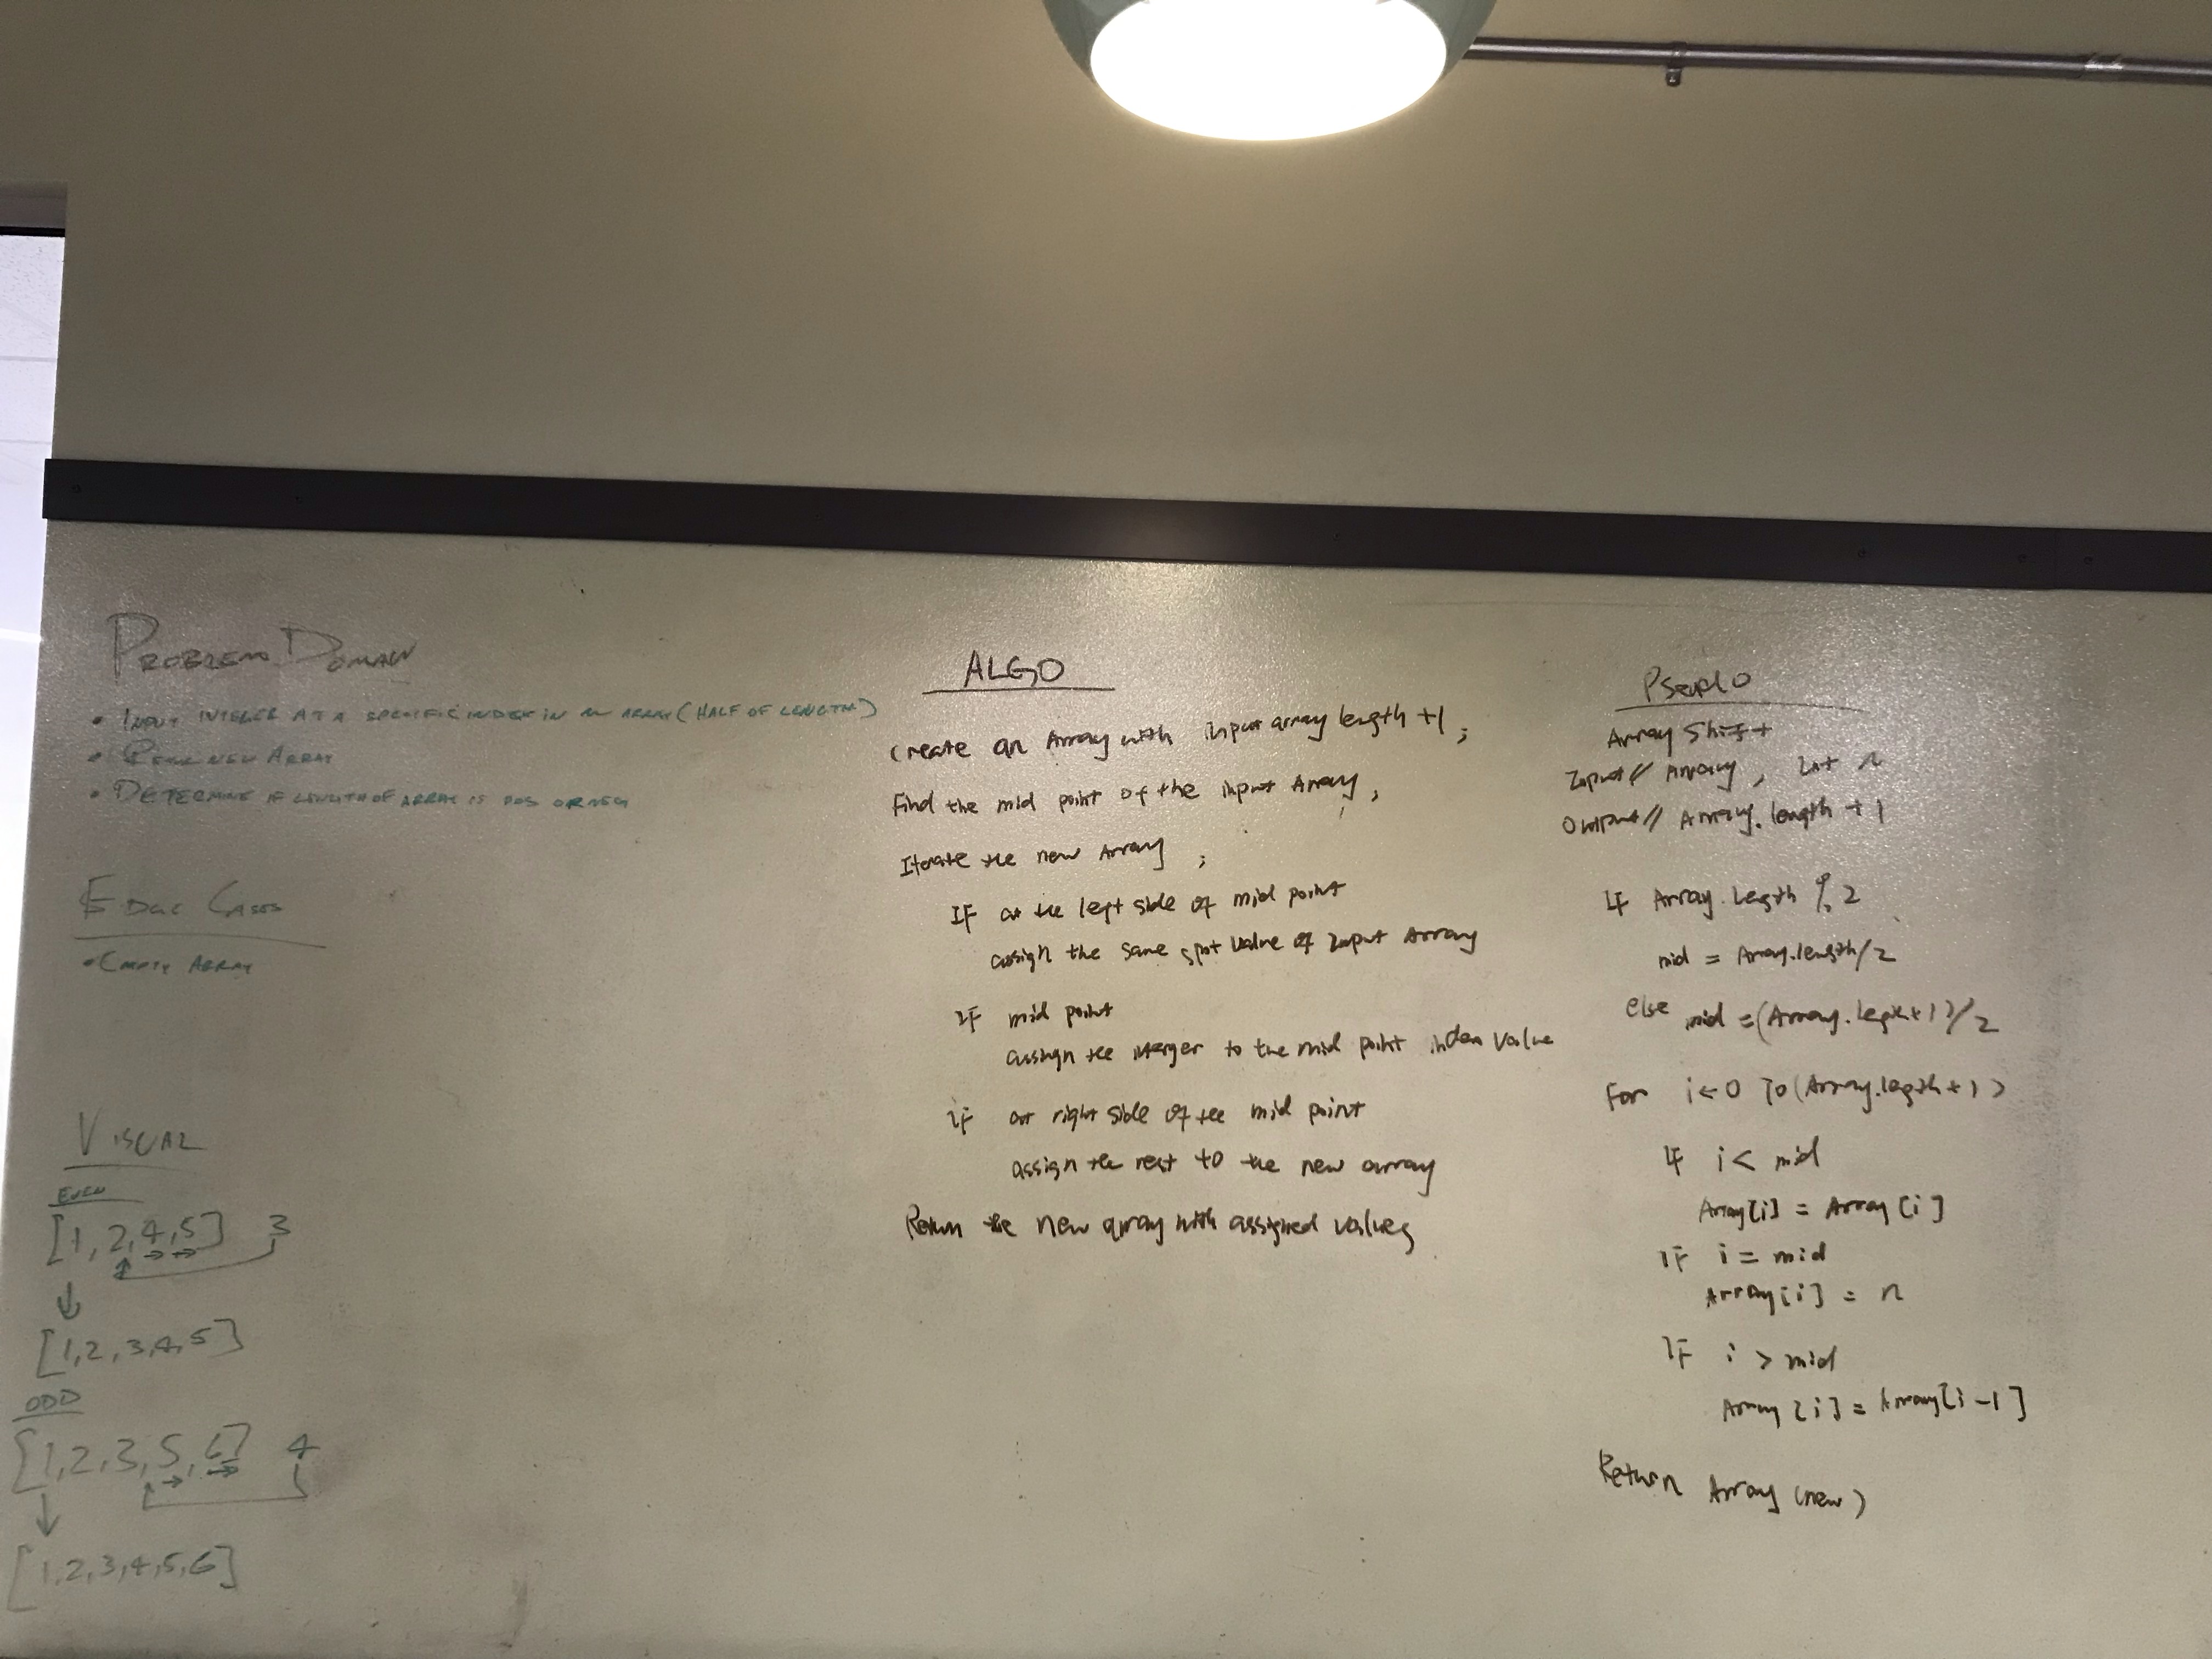 PROBLEM DOMAIN
• INPUT INTEGER AT A SPECIFIC INDEX IN AN ARRAY (HALF OF LENGTH)
• RETURN NEW ARRAY
• DETERMINE IF LENGTH OF ARRAY IS POS OR NEG
EDGE CASES
• EMPTY ARRAY
VISUAL
EVEN
[1, 2, 4, 5] 3
[1, 2, 3, 4, 5]
ODD
[1, 2, 3, 5, 6] 4
[1, 2, 3, 4, 5, 6]
ALGO
Create an Array with input array length +1;
Find the mid point of the input Array;
Iterate the new Array;
IF at the left side of mid point
assign the same spot value of Input Array
IF mid point
assign the interger to the mid point index value
IF at right side of the mid point
assign the rest to the new array
Return the new array with assigned values
Array Shift
Input// Array, Int n
Output// Array.length + 1
IF Array.Length % 2
mid = Array.length/2
else mid = (Array.length+1)/2
For i← 0 To (Array.length+1)
IF i < mid
Array[i] = Array[i]
IF i = mid
Array[i] = n
IF i > mid
Array[i] = Array[i-1]
Return Array (new)